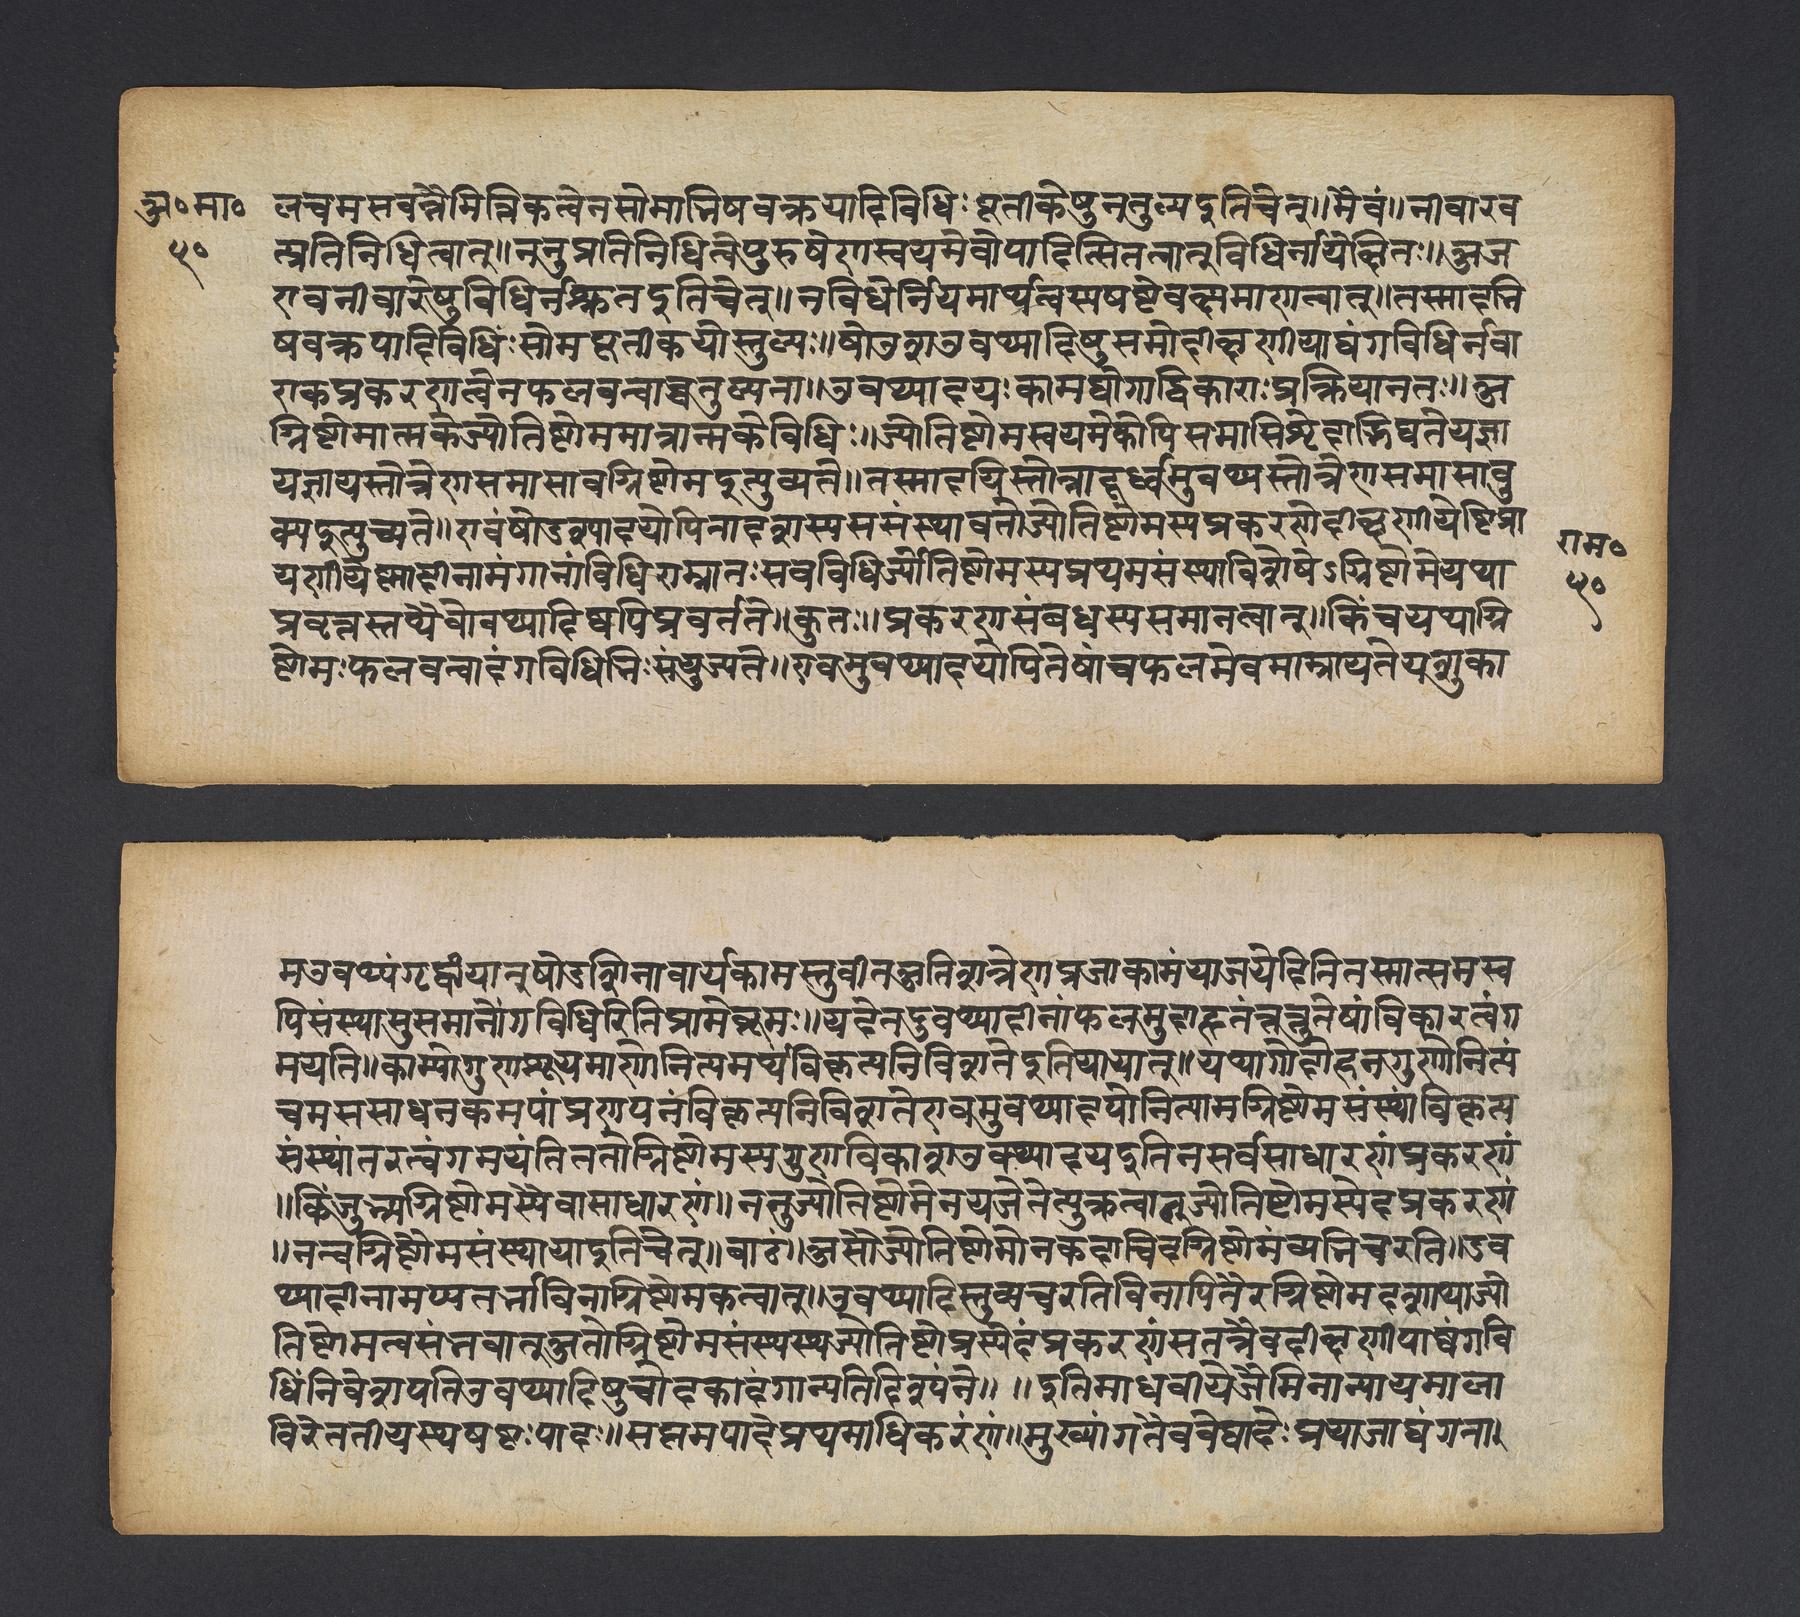 अ॰मा॰
५०
लच्चमसवन्नैमित्तिकत्वेनसोमाभिषवक्रयादिविधिः पूतीकेषुनतुल्यइतिचेत्॥मैवं॥नीवारव
त्प्रतिनिधित्वात्॥ननुप्रतिनिधित्वेपुरुषेणस्वयमेवोपादित्सितत्वात्तुविधिर्नापेक्षितः॥अत
एवनीवारेषुविधिर्नकृतइतिचेत्॥नविधेर्नियमार्थत्वस्यषष्ठेवक्ष्यमाणत्वात्॥तस्मादभि
षवक्रयादिविधिः सोमपूतीकयोस्तुल्यः॥उवथ्यादिषुसमोदीक्षणीयाद्यंगविधिर्नवा
एकप्रकरणत्वेनफलवत्वाच्चतुल्यता॥उवथ्यादयः कामयोगाद्विकाराः प्रक्रियानतः॥अ
ग्निष्टोमात्मकेज्योतिष्टोममात्रात्मकेविधिः॥ज्योतिष्टोमस्वयमेकोपिसमाप्तिभेदाद्भिद्यतेयज्ञा
यज्ञायस्तोत्रेणसमाप्तावग्निष्टोमइत्युच्यते॥तस्मादपिस्तोत्रादूर्ध्वमुवथ्यस्तोत्रेणसमाप्तावु
क्थ्यइत्युच्यते॥एवंषोडश्यादयोपितादृशस्यससंस्थावतोज्योतिष्टोमस्यप्रकरणेदीक्षणीयेष्टिप्रा
यणीयेष्ट्यादीनामंगानांविधिराम्नातः सचविधिर्ज्योतिष्टोमस्यप्रथमसंस्थाविशेषेऽग्निष्टोमेयथा
प्रवृत्तस्तथैवोवथ्यादिष्वपिप्रवर्तते॥कुतः॥प्रकरणसंबंधस्यसमानत्वात्॥किंचयथाग्नि
ष्टोमः फलवत्वादंगविधिभिः संयुज्यते॥एवमुवथ्यादयोपितेषांचफलमेवमाम्नायतेपशुका
राम॰
५०
मउवथ्यंगृह्णीयात्षोडशिनावीर्यकामस्तुवीतअतिरात्रेणप्रजाकामंयाजयेदितितस्मात्समस्व
पिसंस्थासुसमानोंगविधिरितिप्राप्तेब्रूमः॥यदेतदुवथ्यादीनांफलमुदाहृतंतत्तुतेषांविकारत्वंग
मयति॥काम्योगुणःश्रूयमाणोनित्यमर्थंविकृत्यनिविशतेइतिन्यायात्॥यथागोदोहनगुणोनित्यं
चमससाधनकमपांप्रणयनंविकृत्यनिविशतेएवमुवथ्यादयोनित्यामग्निष्टोमसंस्थांविकृत्य
संस्थांतरत्वंगमयंतिततोग्निष्टोमस्यगुणविकाराउवथ्यादयइतिनसर्वसाधारणंप्रकरणं
॥किंतुअग्निष्टोमस्यैवासाधारणं॥ननुज्योतिष्टोमेनयजेतेत्युक्तत्वात्ज्योतिष्टोमस्येदंप्रकरणं
॥नत्वग्निष्टोमसंस्थायाइतिचेत्॥बाढं॥असौज्योतिष्टोमोनकदाचिदग्निष्टोमंव्यभिचरति॥उव
थ्यादीनामप्यंततोविनाग्निष्टोमकत्वात्॥उवथ्यादिस्तुव्यभिचरतिविनापितैरग्निष्टोमदशायांज्यो
तिष्टोमत्वसंभवात्अतोग्निष्टोमसंस्थस्यज्योतिष्टोमस्येदंप्रकरणंसतत्रैवदीक्षणीयाद्यंगवि
धिंनिवेशयतिउवथ्यादिषुचोदकादंगान्यतिदिश्यंते॥ ॥इतिमाधवीयेजैमिनीन्यायमाला
विरेततीयस्यषष्टः पादः॥सप्तमपादेप्रथमाधिकरणं॥मुख्यांगतैववेद्यादेः प्रयाजाद्यंगता